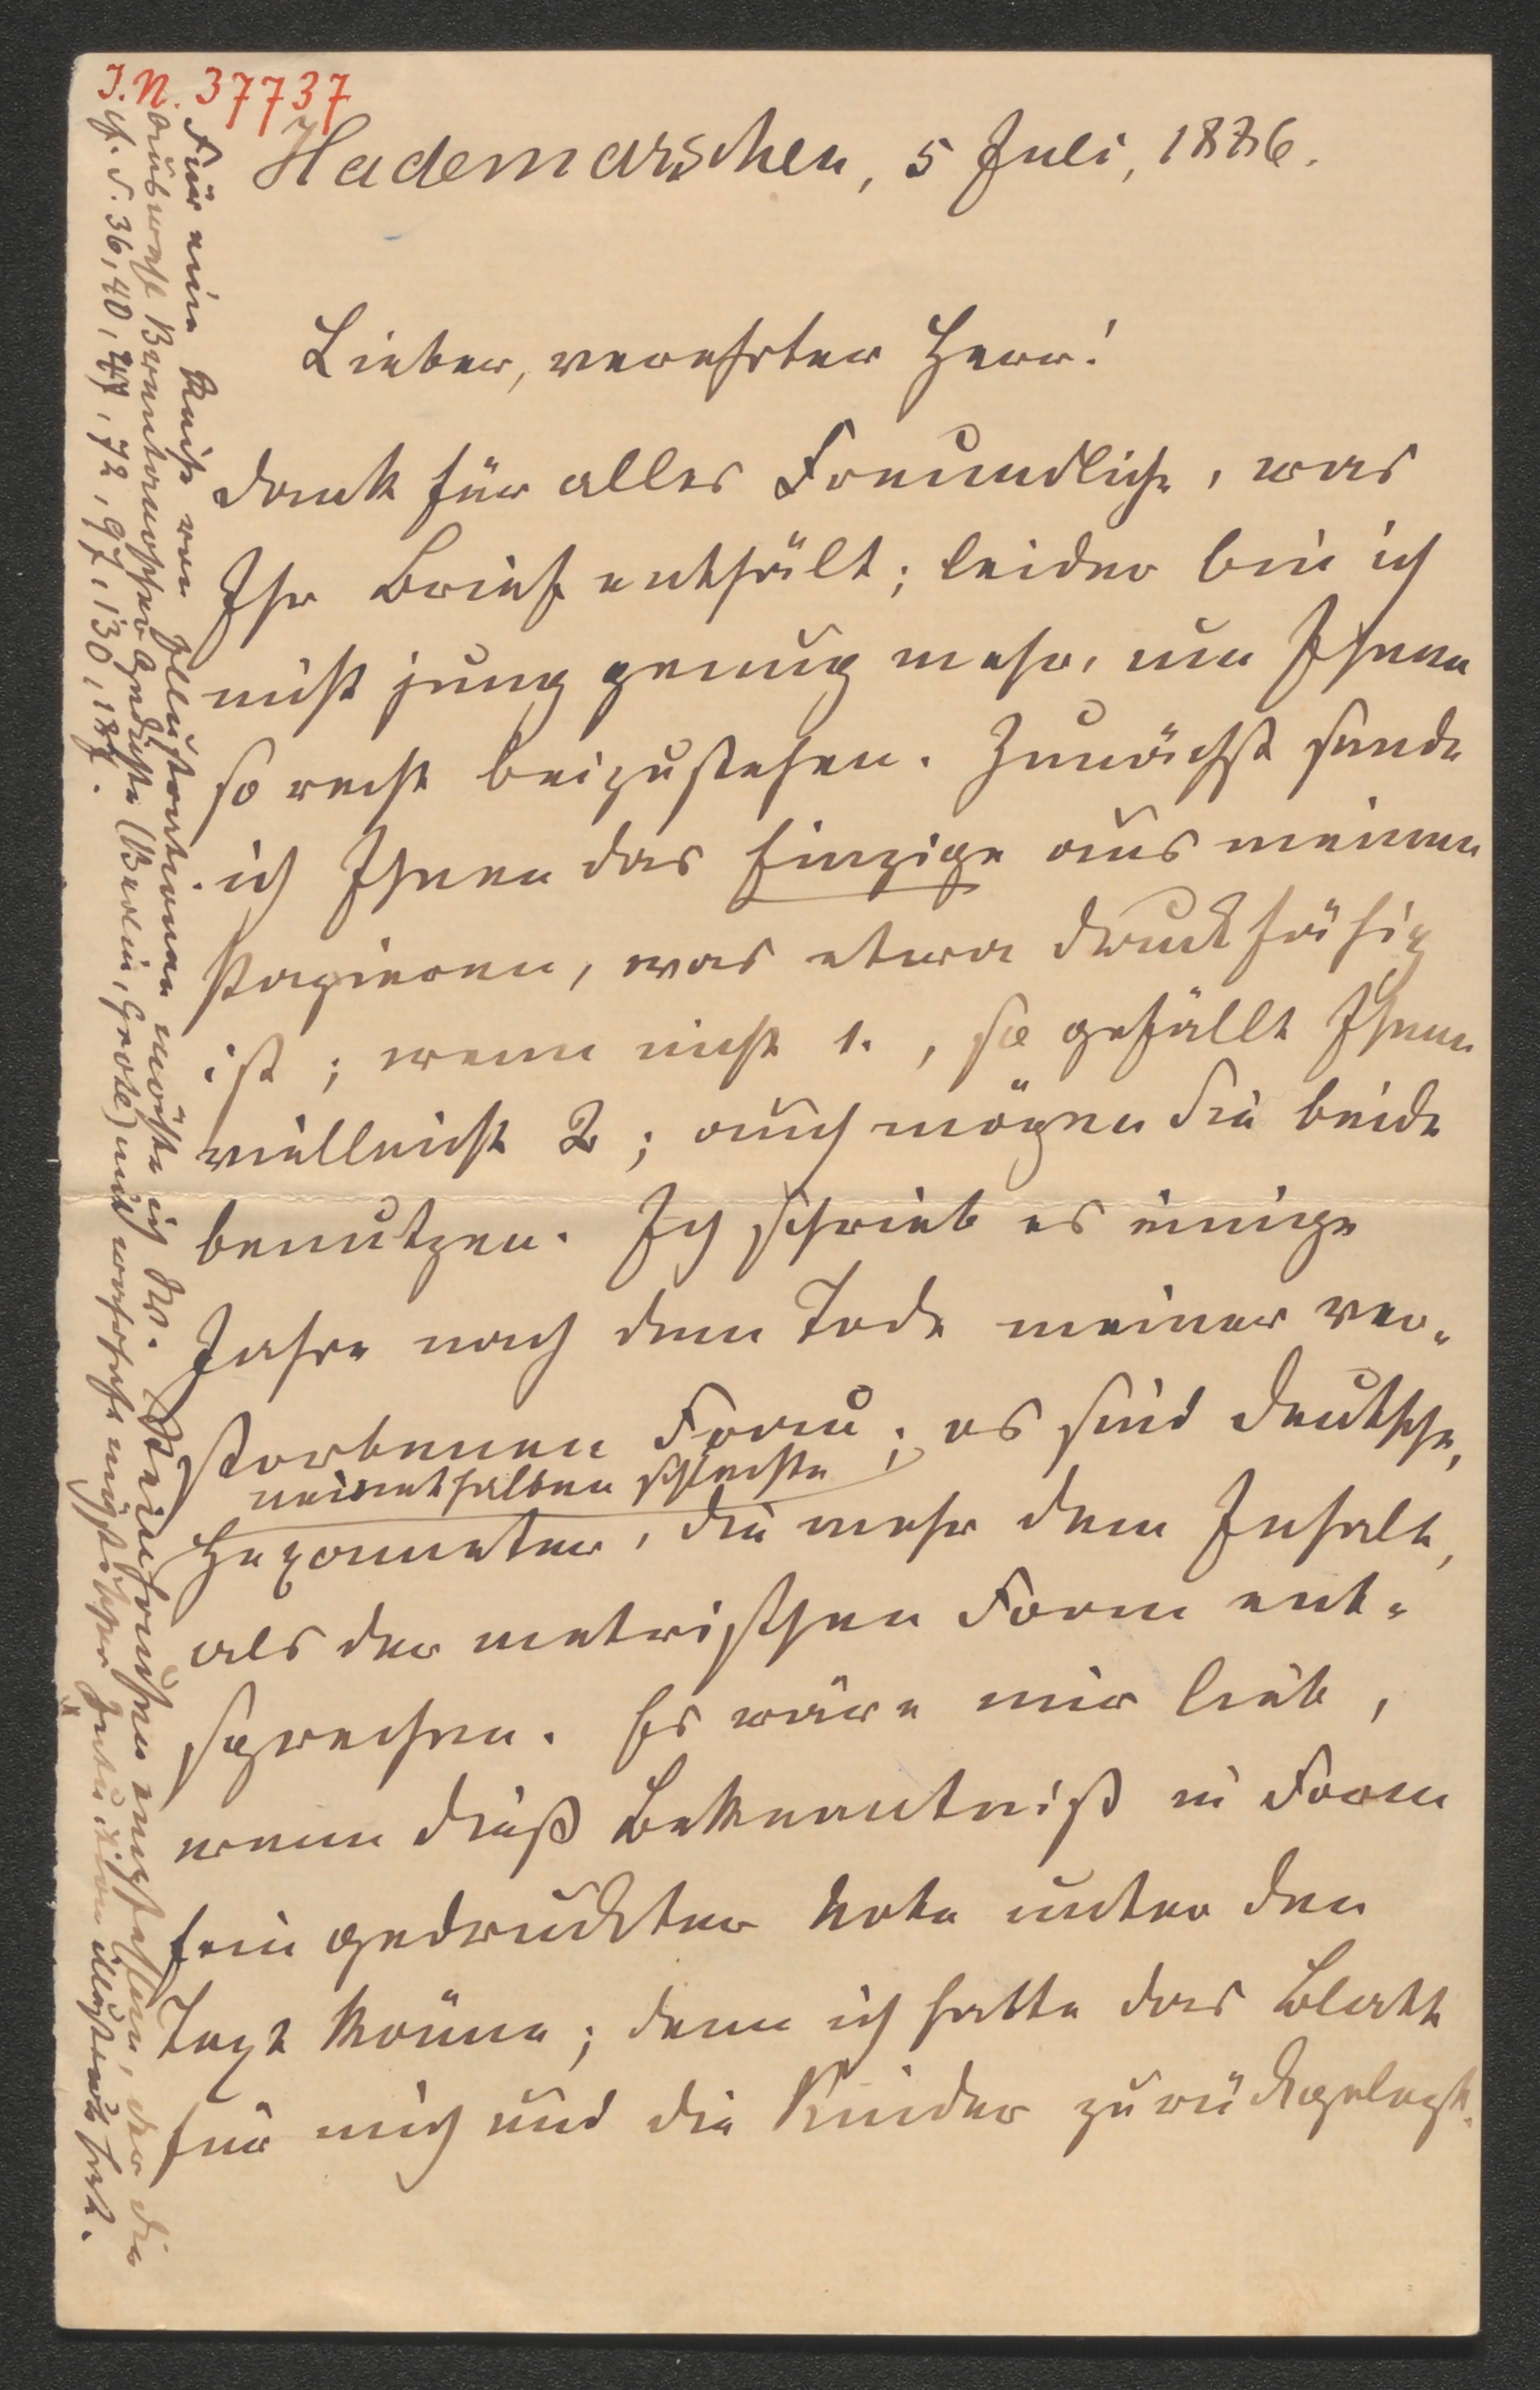 I.N. 37737
Hademarschen, 5 Juli, 1886.
Lieber, verehrter Herr!
Dank für alles Freundliche, was
Ihr Brief enthält; leider bin ich
nicht jung genug mehr, um Ihnen
so recht beizustehen. Zunächst sende
ich Ihnen das Einzige aus meinen
Papieren, was etwa druckfähig
ist; wenn nicht 1., so gefällt Ihnen
vielleicht 2; auch mögen Sie beide
benutzen. Ich schrieb es einige
Jahre nach dem Tode meiner ver-
storbenen Frau; es sind deutsche,
meinethalben schlechte
Hexameter, die mehr dem Inhalt,
als der metrischen Form ent-
sprechen. Es wäre mir lieb,
wenn dieß Bekenntniß in Form
fein gedruckter Note unter den
Text käme; denn ich hatte das Blatt
für mich und die Kinder zurückgelegt.
Für eine Reihe von Illustrationen möchte ich Hr. empfehlen, der die
Gedichte (Berlin, Grote) mit wahrhaft Intuition illustrirt hat.
cf. S. 36, 40, 47, 72, 97, 130, 187.